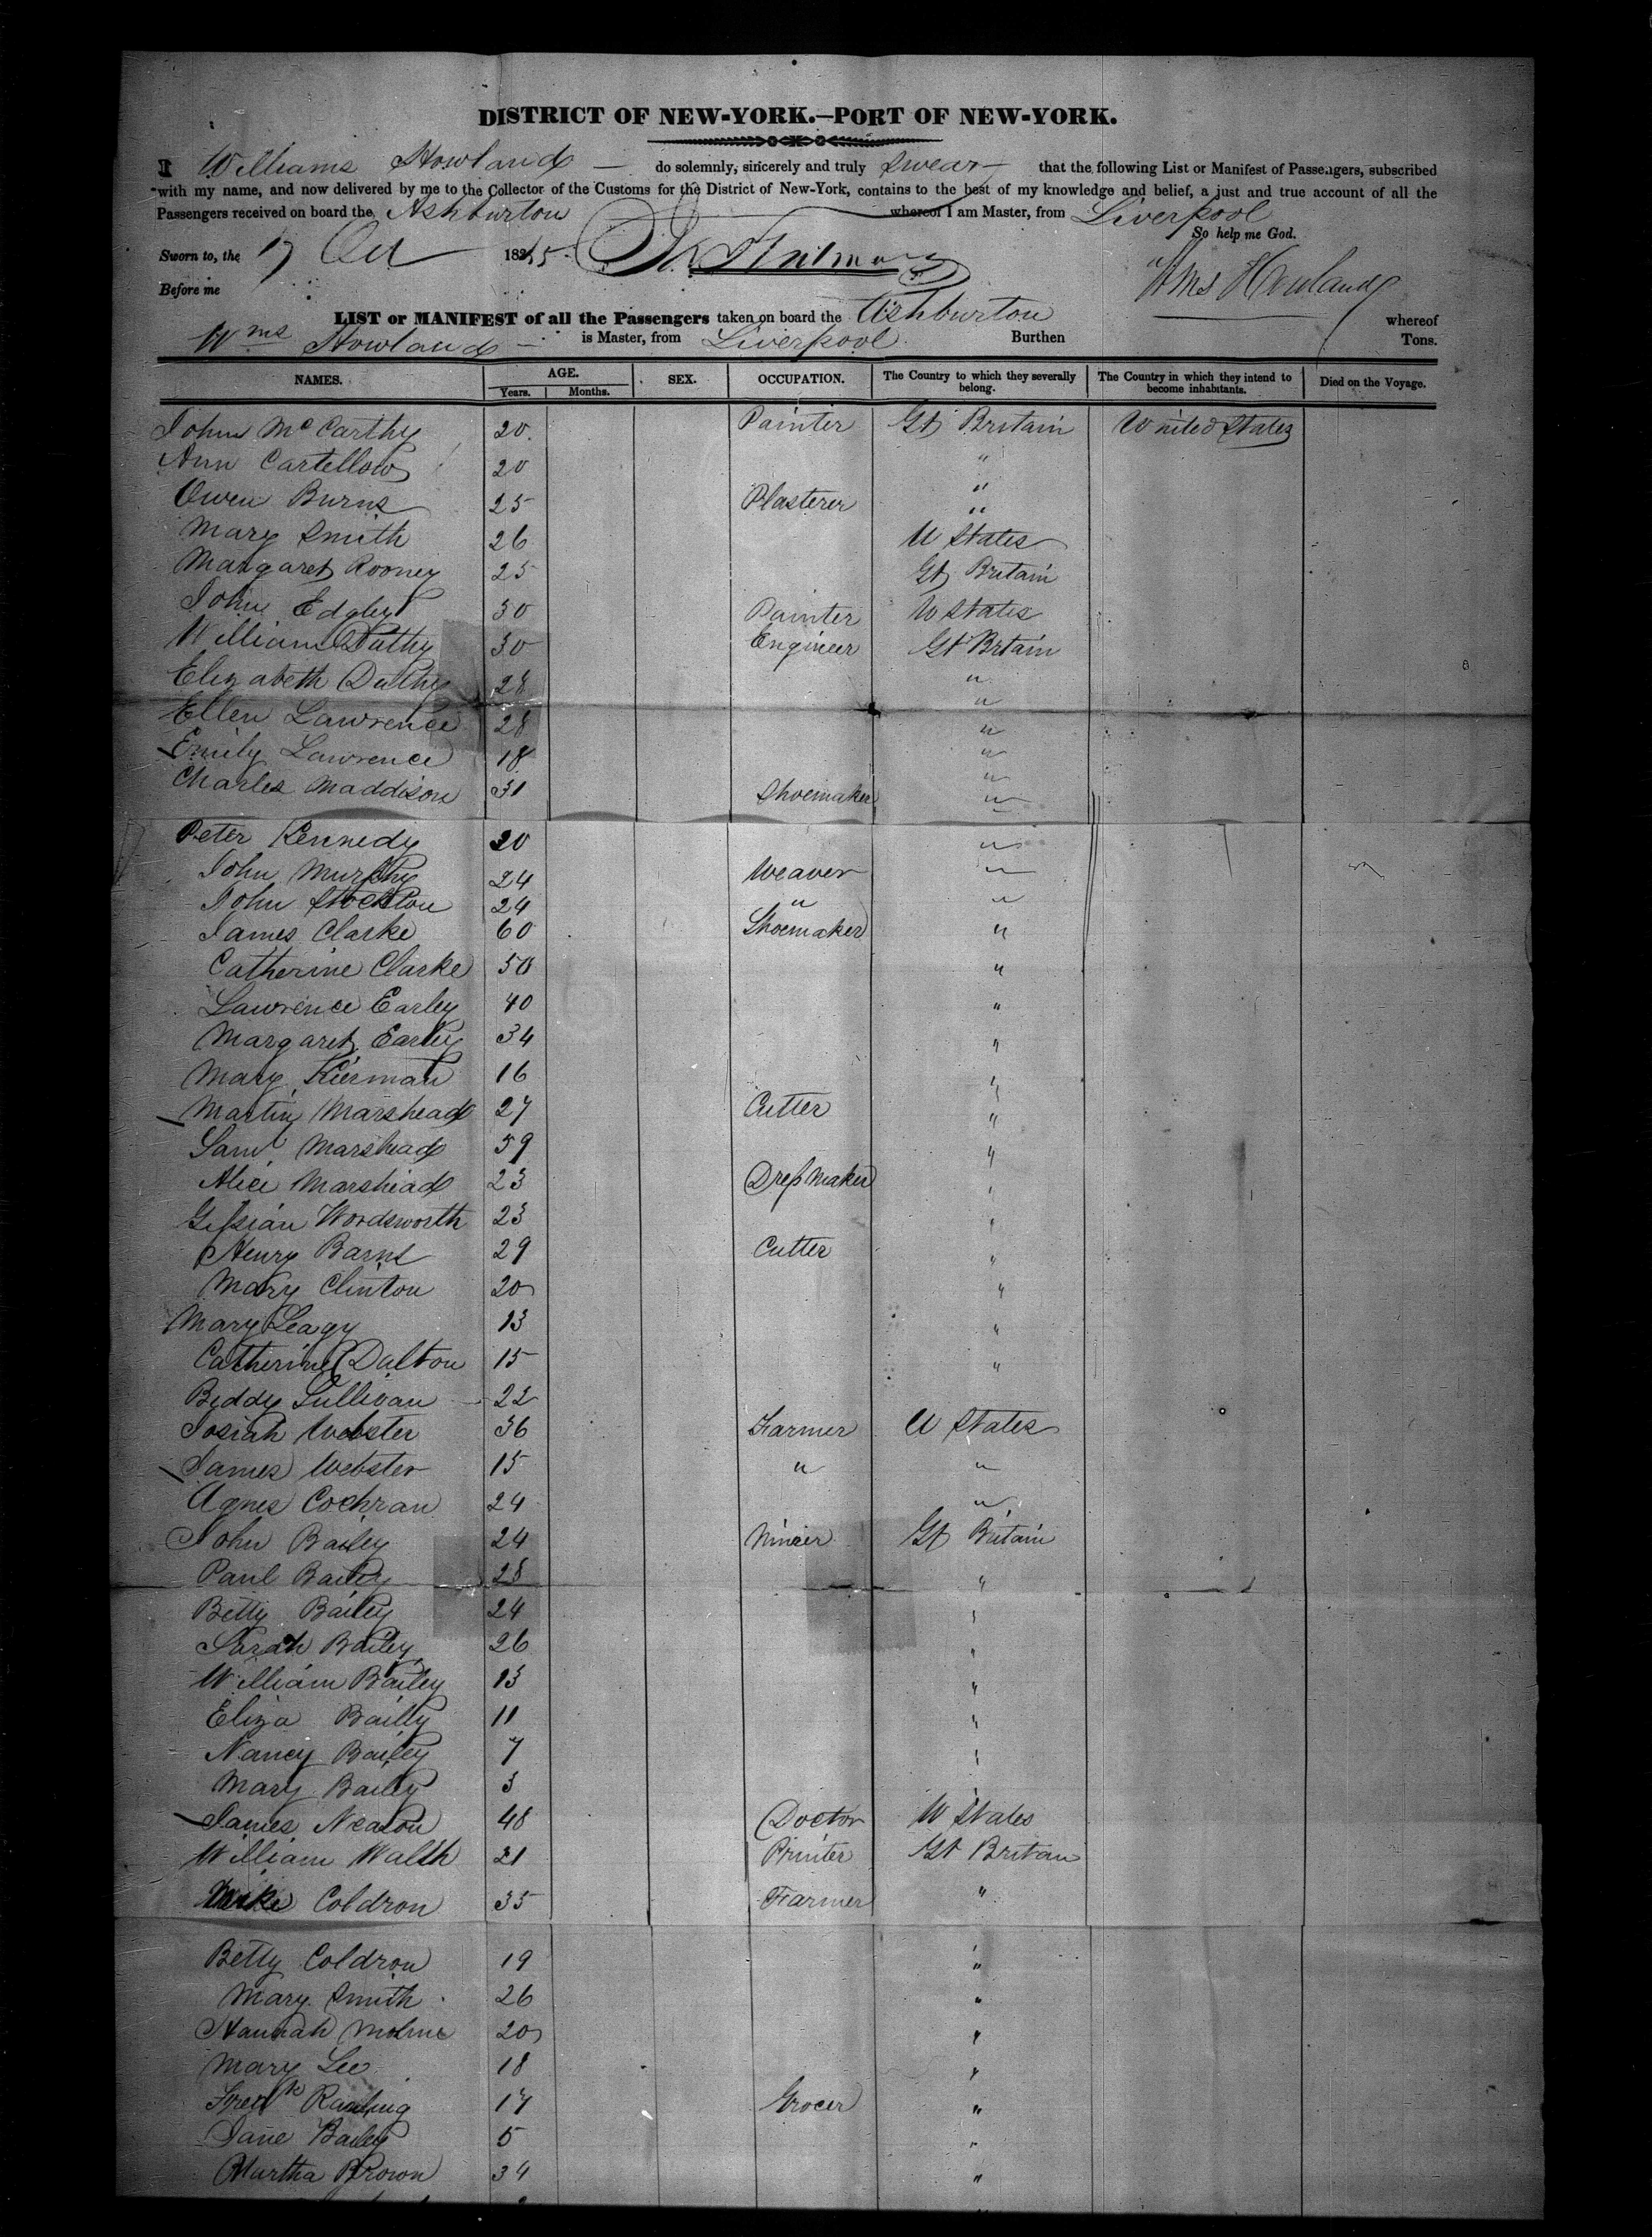 DISTRICT OF NEW-YORK.—PORT OF NEW-YORK.
I Williams Howland do solemnly, sincerely and truly swear that the following List or Manifest of Passengers, subscribed
with my name, and now delivered by me to the Collector of the Customs for the District of New-York, contains to the best of my knowledge and belief, a just and true account of all the
Passengers received on board the Ashburton whereof I am Master, from Liverpool
So help me God.
Sworn to, the 17 Oct 1845
Wms Howland
Before me
LIST or MANIFEST of all the Passengers taken on board the Ashburton whereof
Wms Howland is Master, from Liverpool Burthen Tons.
NAMES. AGE. SEX. OCCUPATION. The Country to which they severally belong. The Country in which they intend to become inhabitants. Died on the Voyage.
Years. Months.
John McCarthy 20 Painter Gt Britain United States
Ann Cartellow 20 "
Owen Burns 25 Plasterer "
Mary Smith 26 U States
Margaret Rooney 25 Gt Britain
John Edgley 30 Painter U States
William Duthy 30 Engineer Gt Brtain
Elizabeth Duthy 28 "
Ellen Lawrence 28 "
Emily Lawrence 18 "
Charles Maddison 31 Shoemaker "
Peter Kennedy 20 "
John Murphy 24 Weaver "
John Stockton 24 " "
James Clarke 60 Shoemaker "
Catherine Clarke 50 "
Lawrence Earley 40 "
Margaret Earley 34 "
Mary Kierman 16 "
Martin Marshead 27 Cutter "
Saml Marshead 59 "
Alice Marshead 23 Dressmaker "
Wordsworth 23 "
Henry Barns 29 Cutter "
Mary Clinton 20 "
Mary Leagy 13 "
Catherine Dalton 15 "
Biddy Sullivan 22
Josiah Webster 36 Farmer U States
James Webster 15 " "
Agnes Cochran 24 "
John Bailey 24 Minier Gt Britain
Paul Bailey 28 "
Betty Bailey 24 "
Sarah Bailey 26 "
William Bailey 13 "
Eliza Bailly 11 "
Nancy Bailey 7 "
Mary Bailey 3 "
James Nealon 48 Doctor U States
William Walsh 21 Printer Gt Britain
Coldron 35 Farmer "
Betty Coldron 19 "
Mary Smith 26 "
Hannah 20 "
Mary Lee 18 "
Fredk Rawling 17 Grocer "
Jane Bailey 5 "
Martha Brown 34 "